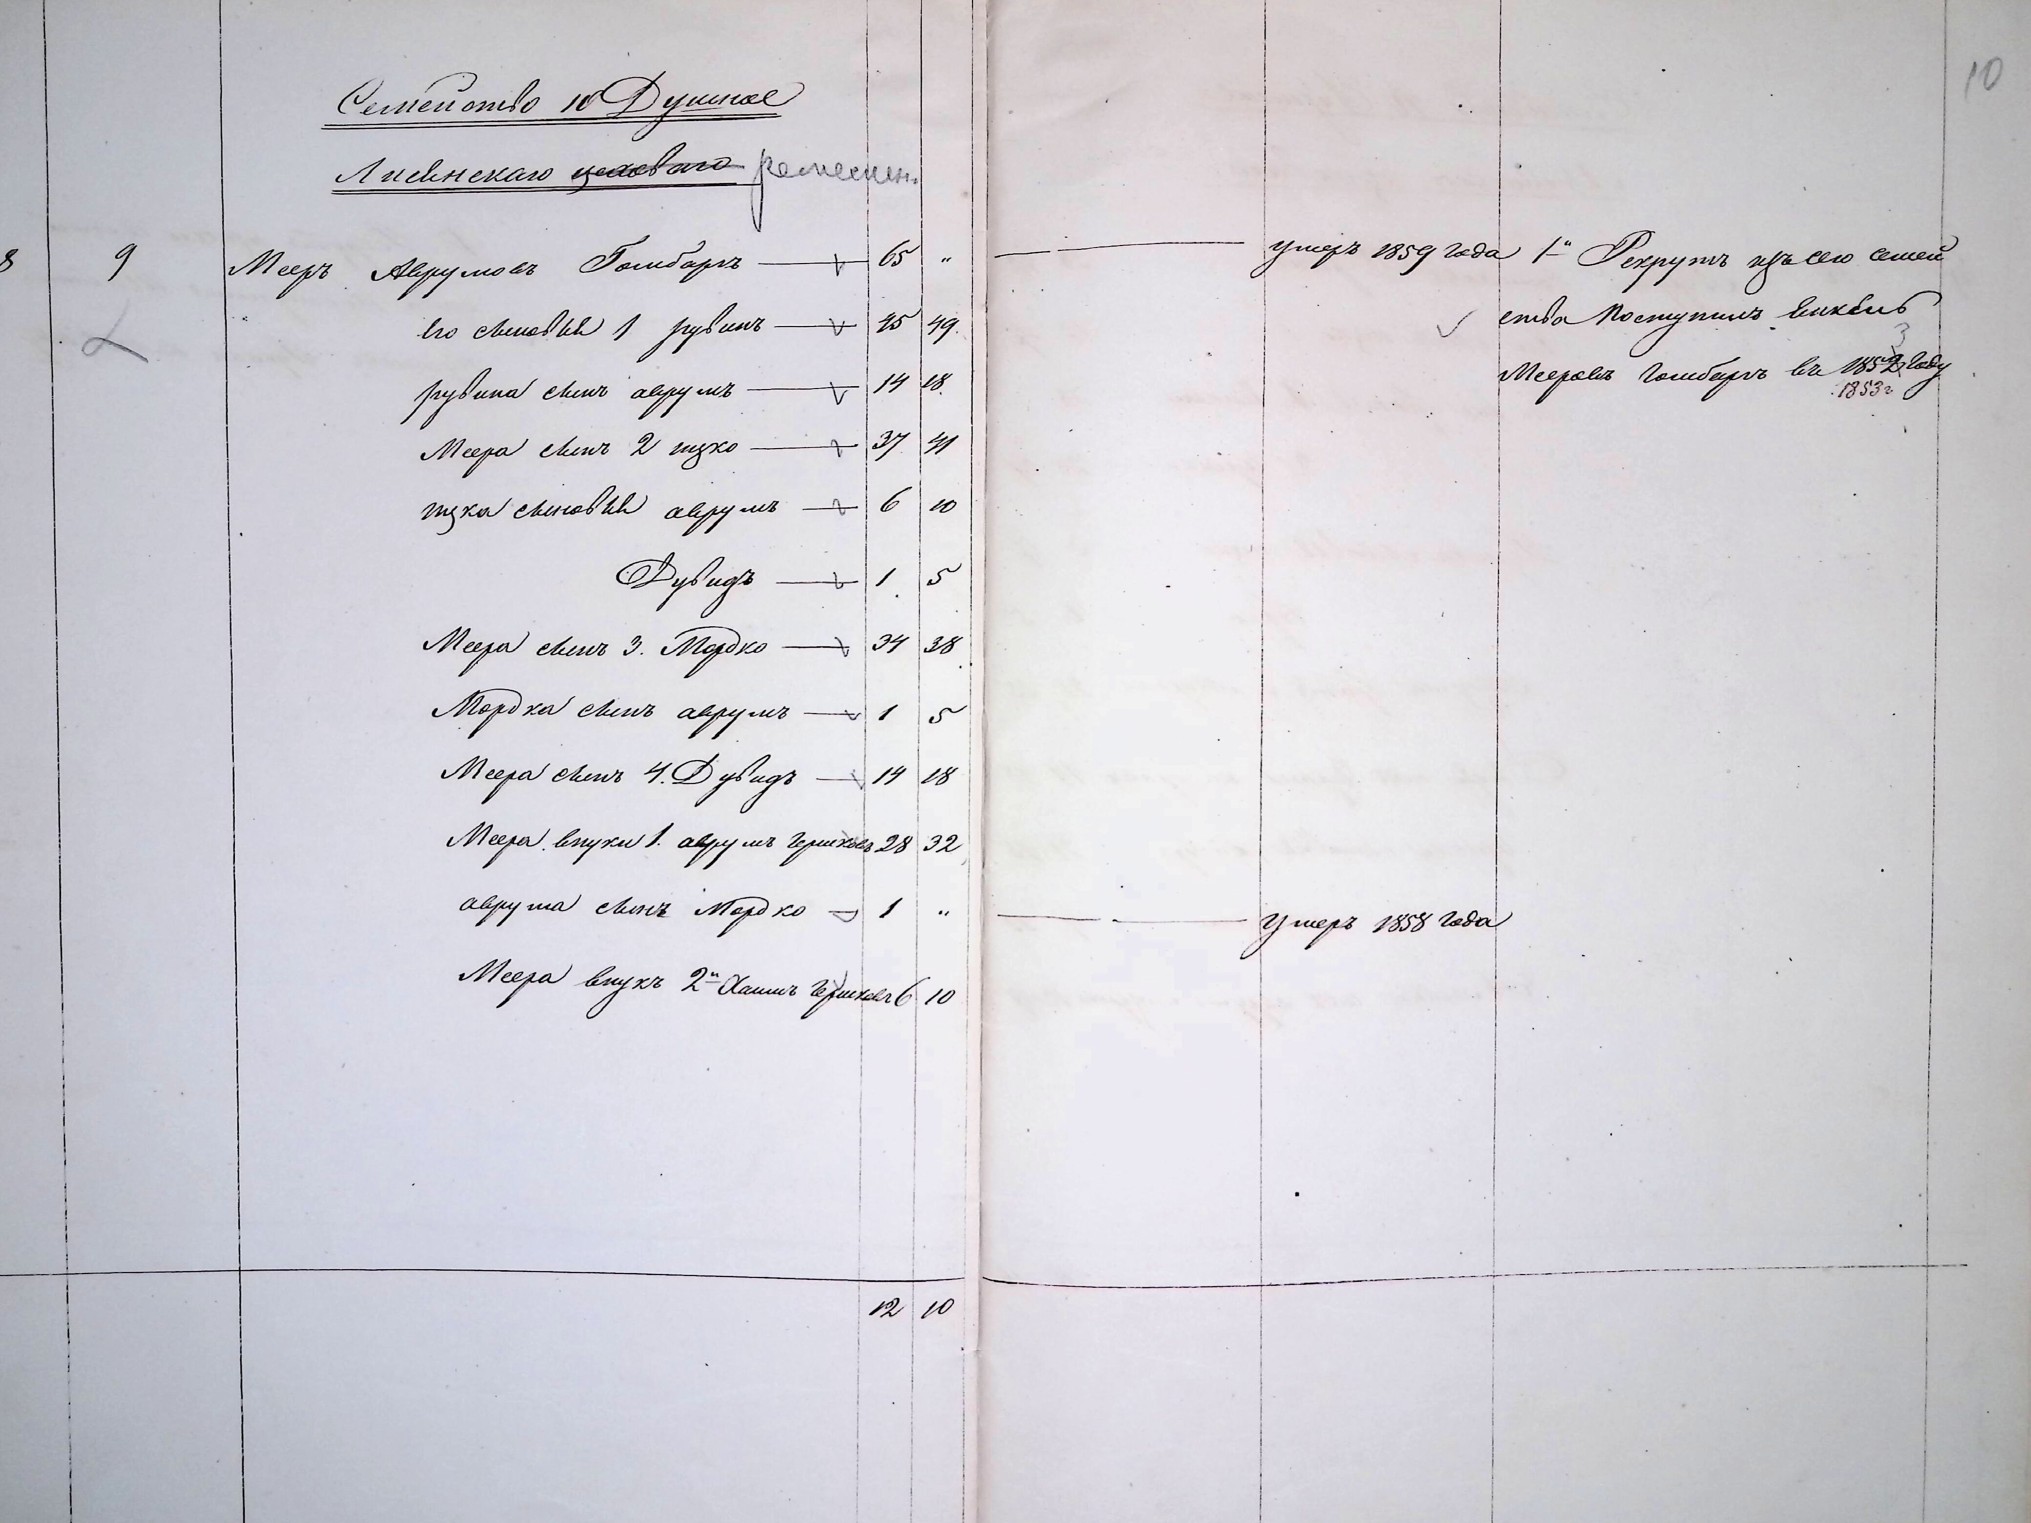 10
Семейство 10 Душное
Липвнскаго цеховаго ремеслен.
8 9 Мееръ Аврумовъ Гомбаръ 65 „ умеръ 1859 года 1й Рекрутъ изъ сего семей
его сыновья 1 рувинъ 45 49. ства Поступилъ
3
рувина сынъ аврумъ 14 18. Мееровъ Гомбаръ въ 1852 Году
1853 г
Меера сынъ 2 ицко 37 41
ицка сыновья аврумъ 6 10
Дувидъ 1 5
Меера сынъ 3. Мордко 34 38
Мордка сынъ аврумъ 1 5
Меера сынъ 4. Дувидъ 14 18
Меера внуки 1. аврумъ Гершковъ 28 32
аврума сынъ Мордко 1 „ умеръ 1858 года
Меера внукъ 2й Хаимъ Гершковъ 6 10
12 10